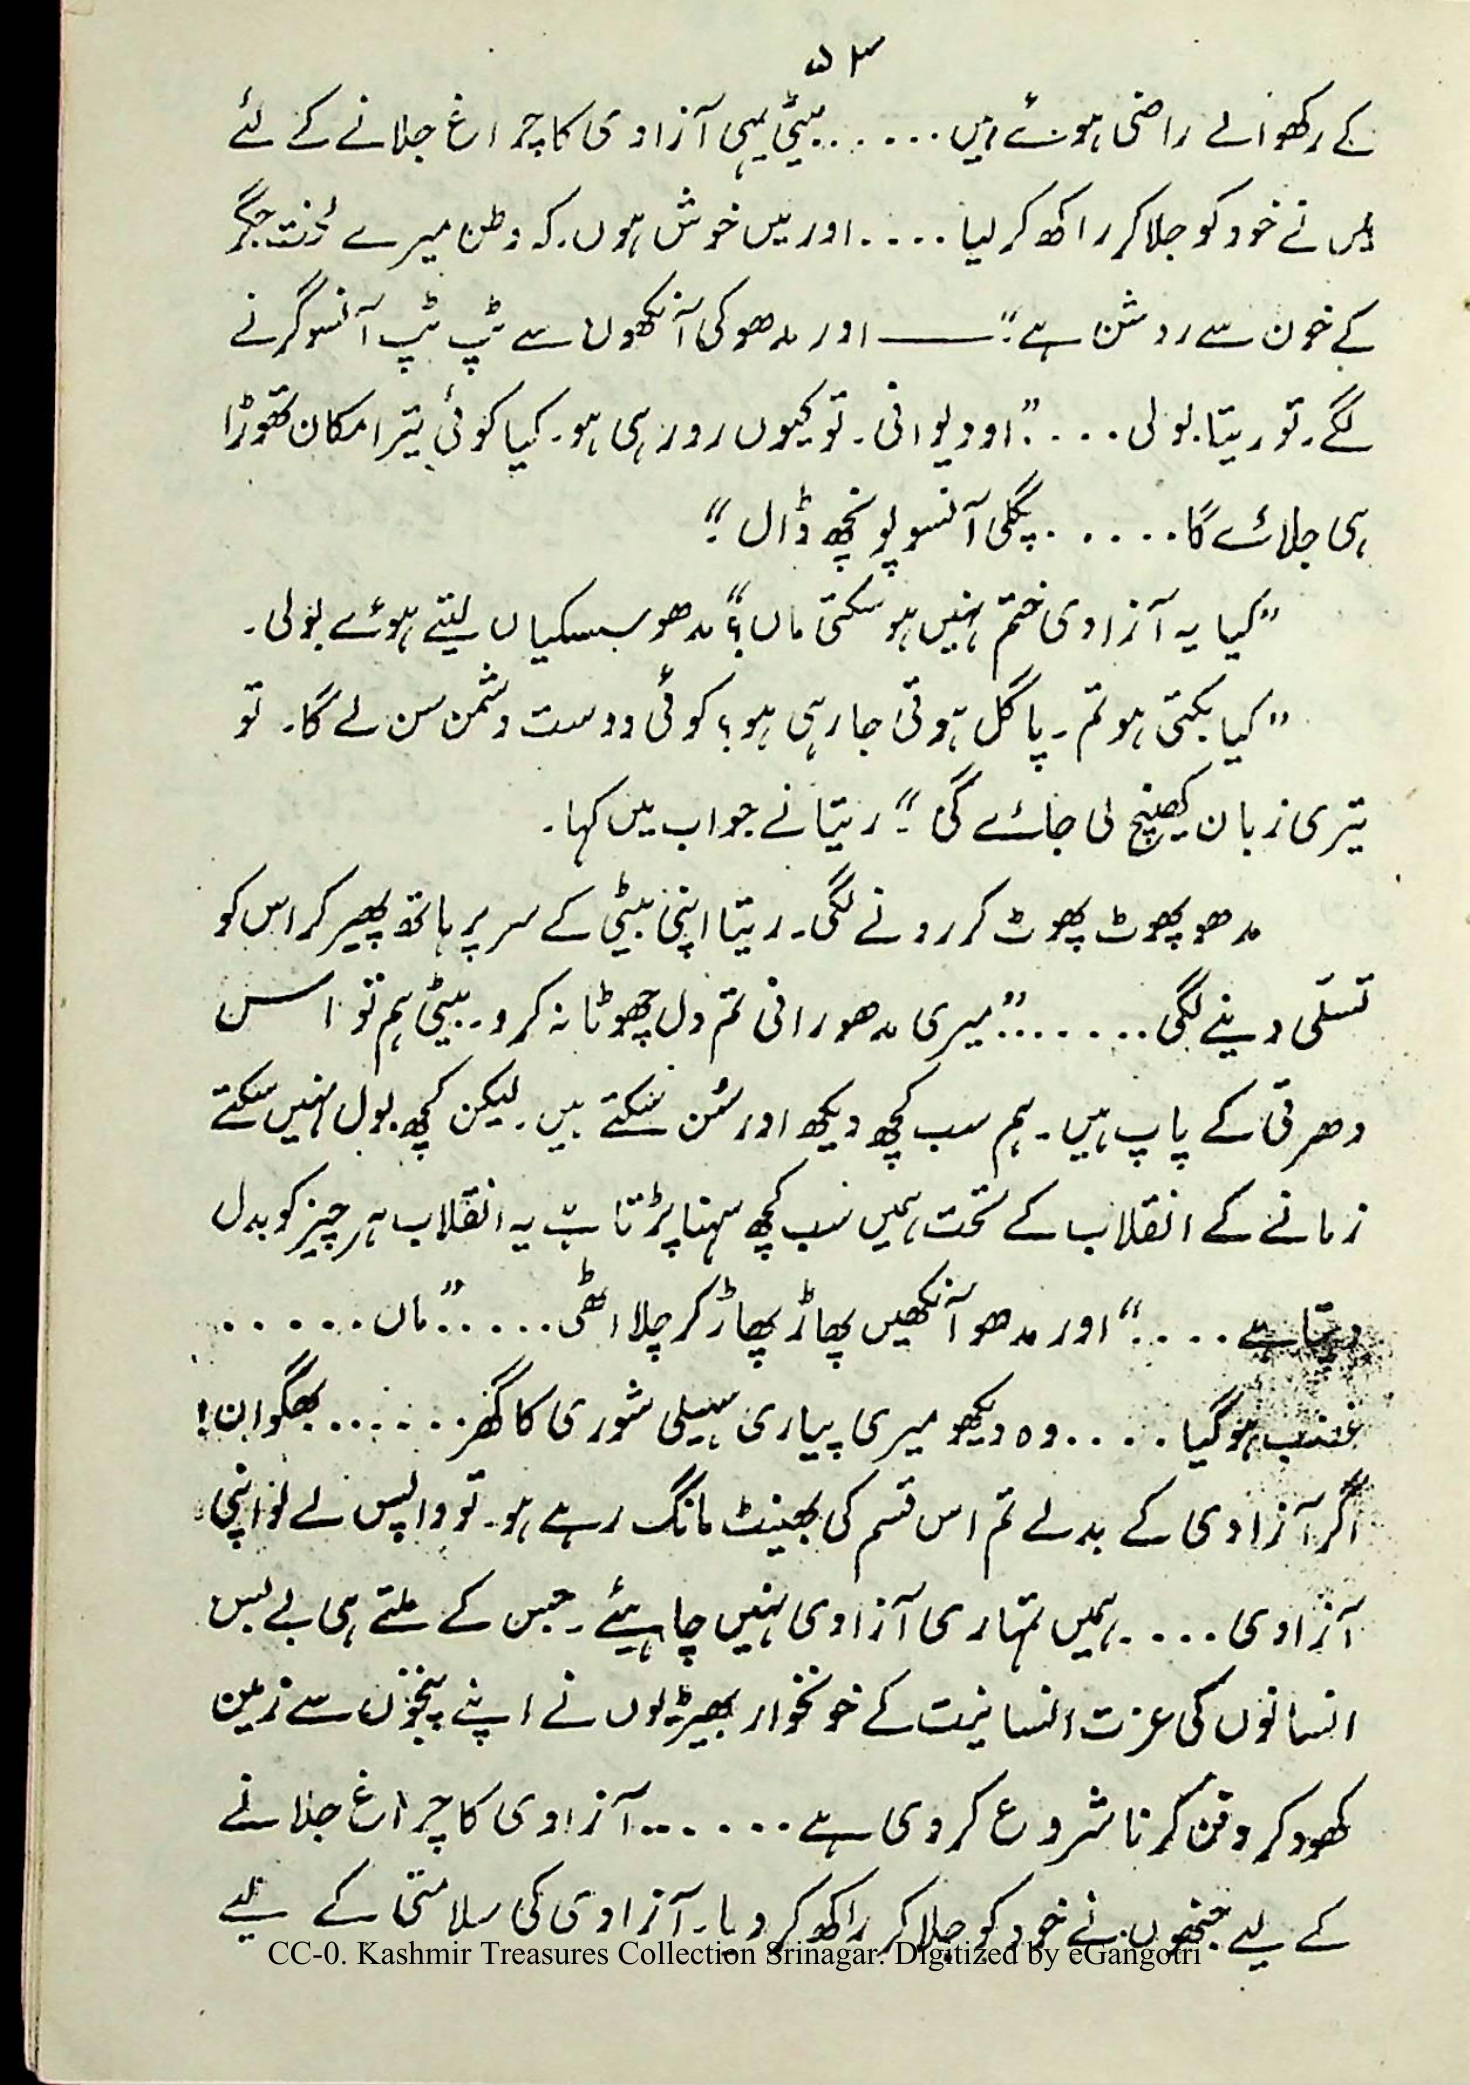 ۵۴
کے رکھوالے راضی ہوئے ہیں ...... بیٹی یہی آزادی کا چراغ جلانے کے لئے
میں نے خود کو جلا کر راکھ کر لیا .... اور میں خوش ہوں۔ کہ وطن میرے لخت جگر
کے خون سے روشن ہے"۔ —— اور مدھو کی آنکھوں سے ٹپ ٹپ آنسو گرنے
لگے۔ تو ریتا بولی .... "او دیوانی۔ تو کیوں رو رہی ہو۔ کیا کوئی تیرا مکان تھوڑا
ہی جلائے گا ..... پگلی آنسو پونچھ ڈال"۔
"کیا یہ آزادی ختم نہیں ہو سکتی ماں؟" مدھو سسکیاں لیتے ہوئے بولی۔
"کیا بکتی ہو تم۔ پاگل ہوتی جا رہی ہو؟ کوئی دوست دشمن سن لے گا۔ تو
تیری زبان کھینچ لی جائے گی"۔ ریتا نے جواب میں کہا۔
مدھو پھوٹ پھوٹ کر رونے لگی۔ ریتا اپنی بیٹی کے سر پر ہاتھ پھیر کر اس کو
تسلّی دینے لگی ...... "میری مدھو رانی تم دل چھوٹا نہ کرو۔ بیٹی ہم تو اس
دھرتی کے پاپ ہیں۔ ہم سب کچھ دیکھ اور سُن سکتے ہیں۔ لیکن کچھ بول نہیں سکتے
زمانے کے انقلاب کے تحت ہمیں سب کچھ سہنا پڑتا ہے یہ انقلاب ہر چیز کو بدل
دیتا ہے ...." اور مدھو آنکھیں پھاڑ پھاڑ کر چلا اٹھی ..... "ماں ......
غضب ہو گیا .... وہ دیکھو میری پیاری سہیلی شوری کا گھر ...... بھگوان!
اگر آزادی کے بدلے تم اس قسم کی بھینٹ مانگ رہے ہو۔ تو واپس لے لو اپنی
آزادی .... ہمیں تمہاری آزادی نہیں چاہیئے۔ جس کے ملتے ہی بے بس
انسانوں کی عزت انسانیت کے خونخوار بھیڑیوں نے اپنے پنجوں سے زمین
کھود کر دفن کرنا شروع کر دی ہے ....... آزادی کا چراغ جلانے
کے لیے جنھوں نے خود کو جلا کر راکھ کر دیا۔ آزادی کی سلامتی کے لیے
CC-0. Kashmir Treasures Collection Srinagar. Digitized by eGangotri